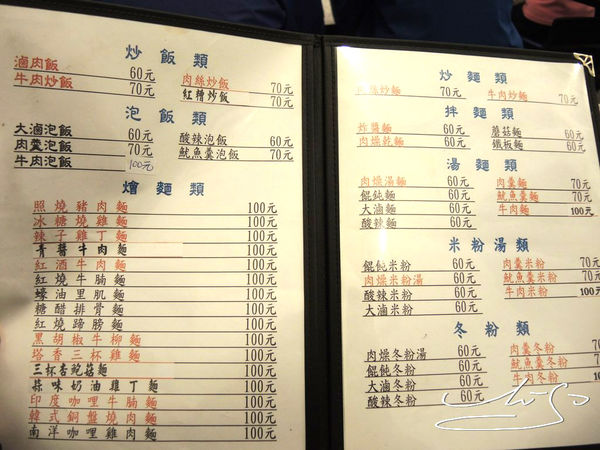 炒飯類
滷肉飯 60元
牛肉炒飯 70元
肉絲炒飯 70元
紅糟炒飯 70元
泡飯類
大滷泡飯 60元
肉羹泡飯 70元
牛肉泡飯 100元
酸辣泡飯 60元
魷魚羹泡飯 70元
燴麵類
照燒豬肉麵 100元
冰糖燒雞麵 100元
辣子雞丁麵 100元
青醬牛肉麵 100元
紅酒牛肉麵 100元
紅燒牛腩麵 100元
蠔油里肌麵 100元
糖醋排骨麵 100元
紅燒蹄膀麵 100元
黑胡椒牛柳麵 100元
塔香三杯雞麵 100元
三杯杏鮑菇麵 100元
蒜味奶油雞丁麵 100元
印度咖哩牛腩麵 100元
韓式銅盤燒肉麵 100元
南洋咖哩雞肉麵 100元
炒麵類
肉絲炒麵 70元
牛肉炒麵 70元
拌麵類
炸醬麵 60元
肉燥乾麵 60元
蘑菇麵 60元
鐵板麵 60元
湯麵類
肉燥湯麵 60元
餛飩麵 60元
大滷麵 60元
酸辣麵 60元
肉羹麵 70元
魷魚羹麵 70元
牛肉麵 100元
米粉湯類
餛飩米粉 60元
肉燥米粉湯 60元
酸辣米粉 60元
大滷米粉 60元
肉羹米粉 70元
魷魚羹米粉 70元
牛肉米粉 100元
冬粉類
肉燥冬粉湯 60元
餛飩冬粉 60元
大滷冬粉 60元
酸辣冬粉
肉羹冬粉 70元
魷魚羹冬粉
牛肉冬粉 100元